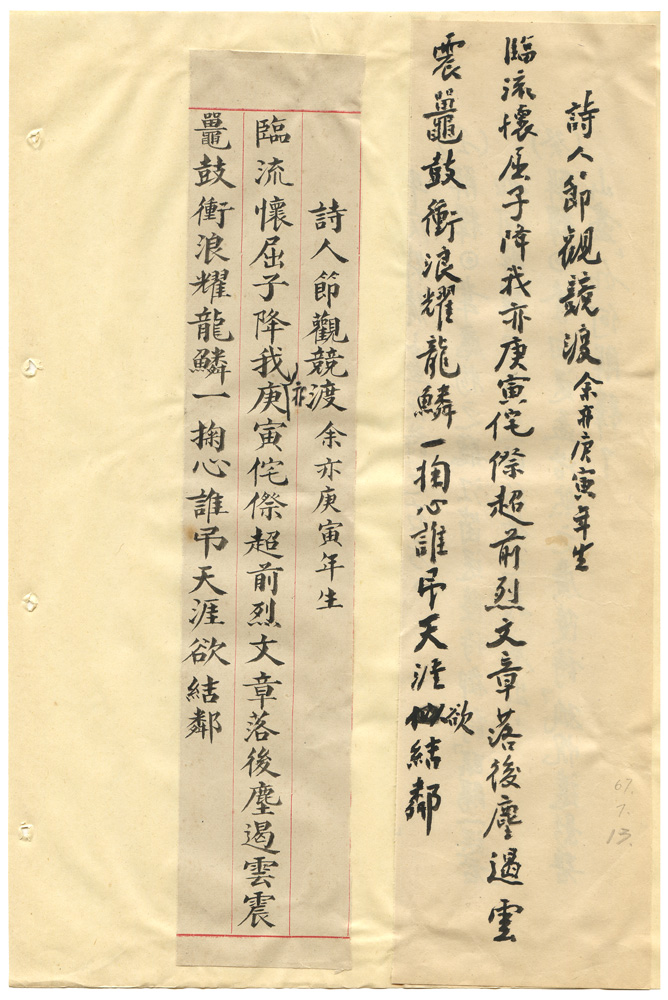 詩人節觀競渡 余亦庚寅年生
臨流懷屈子降我亦庚寅侘傺超前烈文章落後塵遏雲
震鼉鼓衝浪耀龍鱗一掬心誰吊天涯欲結鄰
67.
7.
13.
詩人節觀競渡 余亦庚寅年生
臨流懷屈子降我亦庚寅侘傺超前烈文章落後塵遏雲震
鼉鼓衝浪耀龍鱗一掬心誰吊天涯欲結鄰